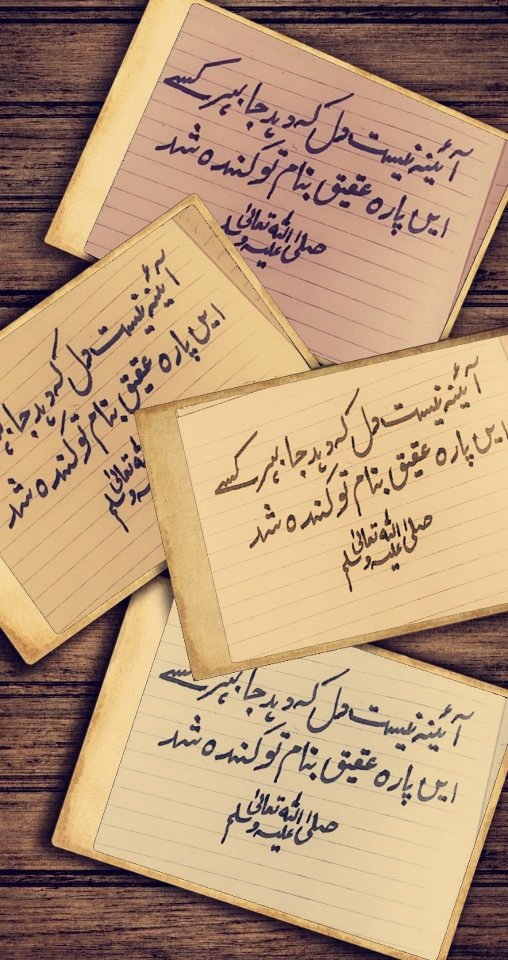 آئینہ نیست دل کہ دہد جا بہر کسے
ایں پارہ عقیق بنام تو کندہ شد
صلی اللہ تعالیٰ
علیہ وسلم
آئینہ نیست دل کہ دہد جا
ایں پارہ عقیق بنام تو کندہ شد
تعالیٰ
وسلم
آئینہ نیست دل کہ دہد جا بہر کسے
ایں پارہ عقیق بنام تو کندہ شد
صلی اللہ تعالیٰ
علیہ وسلم
آئینہ نیست دل کہ دہد جا بہر کسے
ایں پارہ عقیق بنام تو کندہ شد
صلی اللہ تعالیٰ
علیہ وسلم